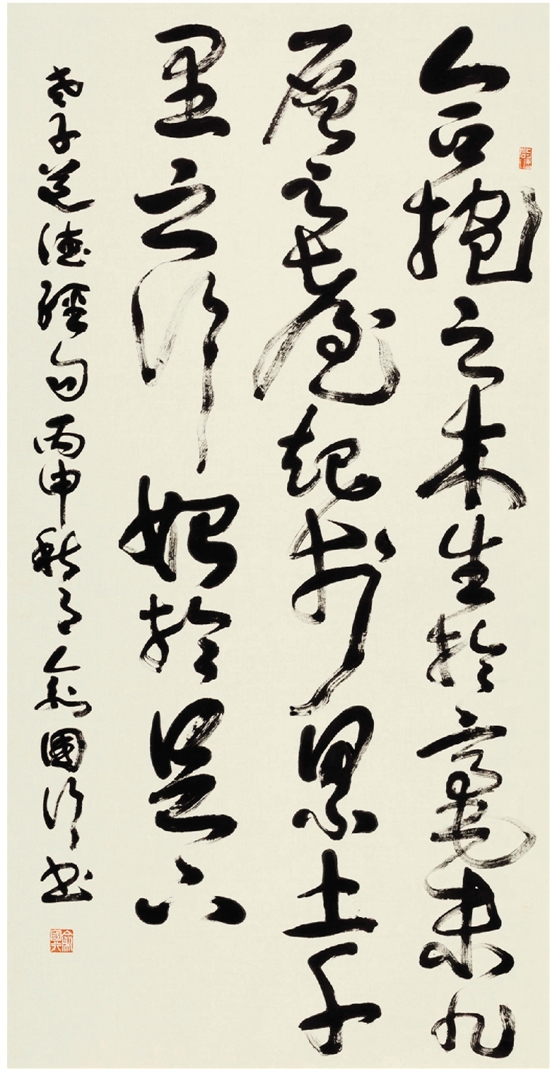 合抱之木生於毫末九
層之臺起於累土千
里之行始於足下
老子道德經句丙申秋月俞國行书